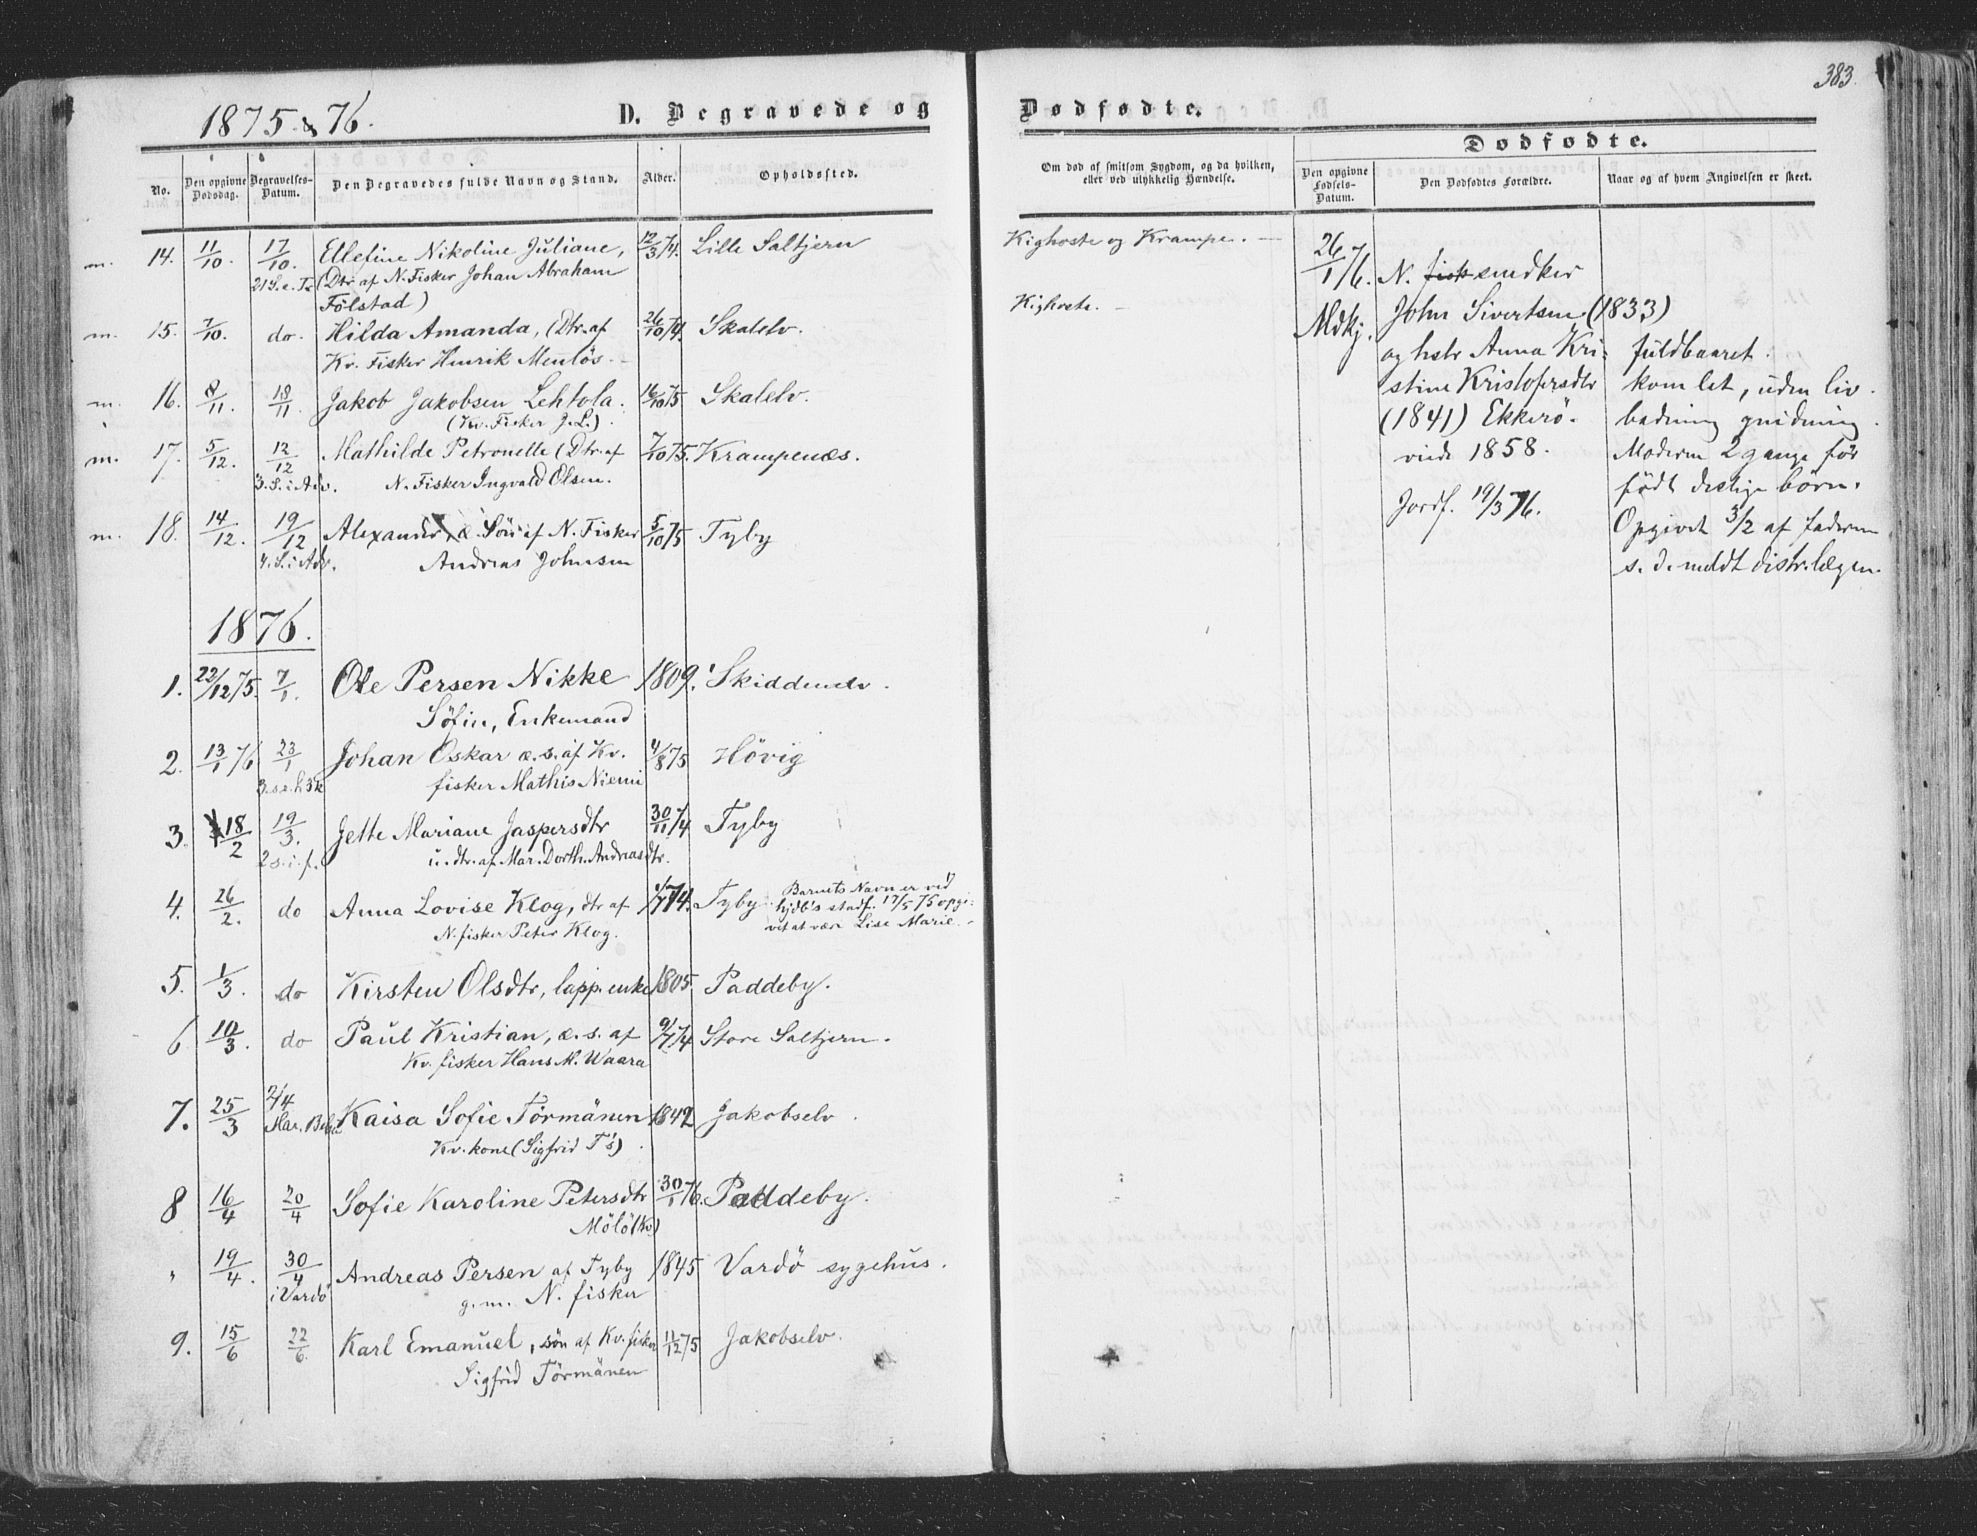 383.
1875 & 76.
D. Begravede og Dødfødte.
Dødfødte.
No.
Den opgivne Dødsdag.
Begravelses-Datum.
Den Begravedes fulde Navn og Stand.
Alder.
Opholdssted.
Om død af smitsom Sygdom, og da hvilken,
eller ved ulykkelig Hændelse.
Den opgivne Fødsels-Datum.
Den Dødfødtes Forældre.
Naar og af hvem Angivelsen er skeet.
m. 14. 11/10. 17/10. Ellefine Nikoline Juliane, 12/3 74. Lille Saltjern Kighoste og Krampe. —
21 S. e. Tr. (Dtr af N. Fisker Johan Abraham
Fölstad)
m. 15. 7/10. do. Hilda Amanda, (Dtr. af 26/10 74. Skalelv. Kighoste. —
Kv. Fisker Henrik Menlös. -
m. 16. 8/11. 18/11. Jakob Jakobsen Lehtola. 16/10 75 Skalelv.
(Kv. Fisker J. L.).
m. 17. 5/12. 12/12 Mathilde Petronelle (Dtr. af 7/10 75. Krampenæs.
3. S. i Adv. N. Fisker Ingvald Olsen.
m. 18. 14/12. 19/12 Alexander, æ. Sön af N. Fisker 5/10 75 Tyby
4. S. i Adv. Andreas Johnsen
1876.
1. 22/12 75. 7/1. Ole Persen Nikke 1809. Skiddenelv.
Söfin, Enkemand
2. 13/1 76 23/1 Johan Oskar æ. s. af Kv. 4/8 75 Hövig
3. s. e. h 3 k fisker Mathis Niemi
3. 18/2 19/3. Jette Mariane Jaspersdtr 30/11 74 Tyby
2 s. i. f. u. dtr. af Mar. Dorth. Andreasdtr.
4. 26/2. do Anna Lovise Klog, dtr af 1/7 74. Tyby Barnets Navn er ved
N. fisker Peter Klog. hjdb's stadf. 17/5 75 opgi-
vet at være Lise Marie. -
5. 1/3. do Kirsten Olsdtr, lapp. enke 1805. Paddeby.
6. 10/3. do Paul Kristian, æ. s. af 9/7 74 Store Saltjern.
Kv. fisker Hans M. Waara
7. 25/3 2/4 Kaisa Sofie Törmänen 1842 Jakobselv.
Mar. Beb. Kv. kone (Sigfrid T's).
8 16/4 20/4 Sofie Karoline Petersdtr 30/1 76. Paddeby.
Mölö(Kv)
" 19/4. 30/4 Andreas Persen af Tyby 1845 Vardö sygehus.
i Vardö g. m. N. fisker
9. 15/6 22/6. Karl Emanuel, sön af Kv. fisker 11/12 75 Jakobselv.
Sigfrid Törmänen
26/1 76. N. fisk smedker
Mdkj. John Sivertsen (1833)
og hstr Anna Kri-
stine Kristofersdtr
(1841) Ekkerö.
viede 1858.
Jordf. 19/3 76.
fuldbaaret.
kom let, uden liv.
badning gnidning.
Moderen 2 gange för
födt deslige börn.
Opgivet 3/2 af faderen
s. d. meldt distr. lægen.